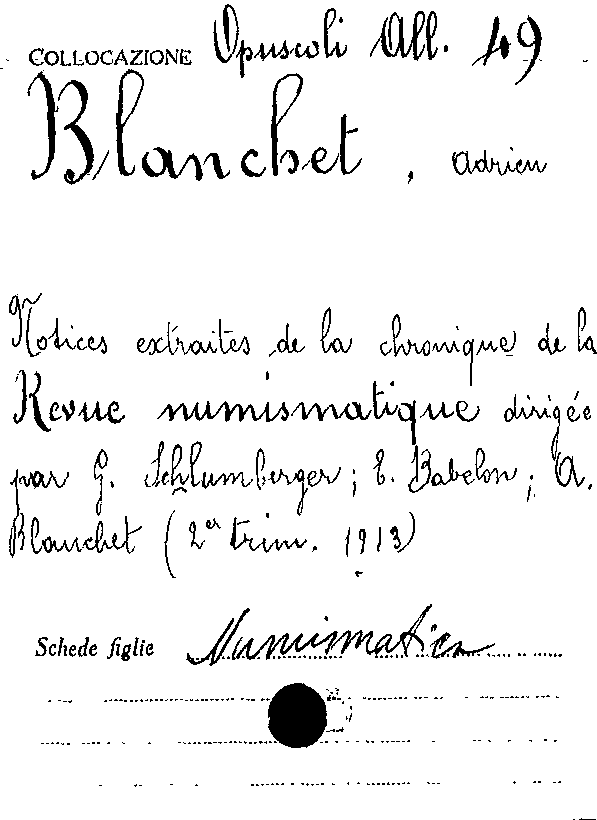 COLLOCAZIONE Opuscoli All. 49
Blanchet, Adrien
Notices extraites de la chronique de la
Revue numismatique dirigée
par G. Schlumberger; E. Babelon; A.
Blanchet (2er trim. 1913)
Schede figlie Numismatica